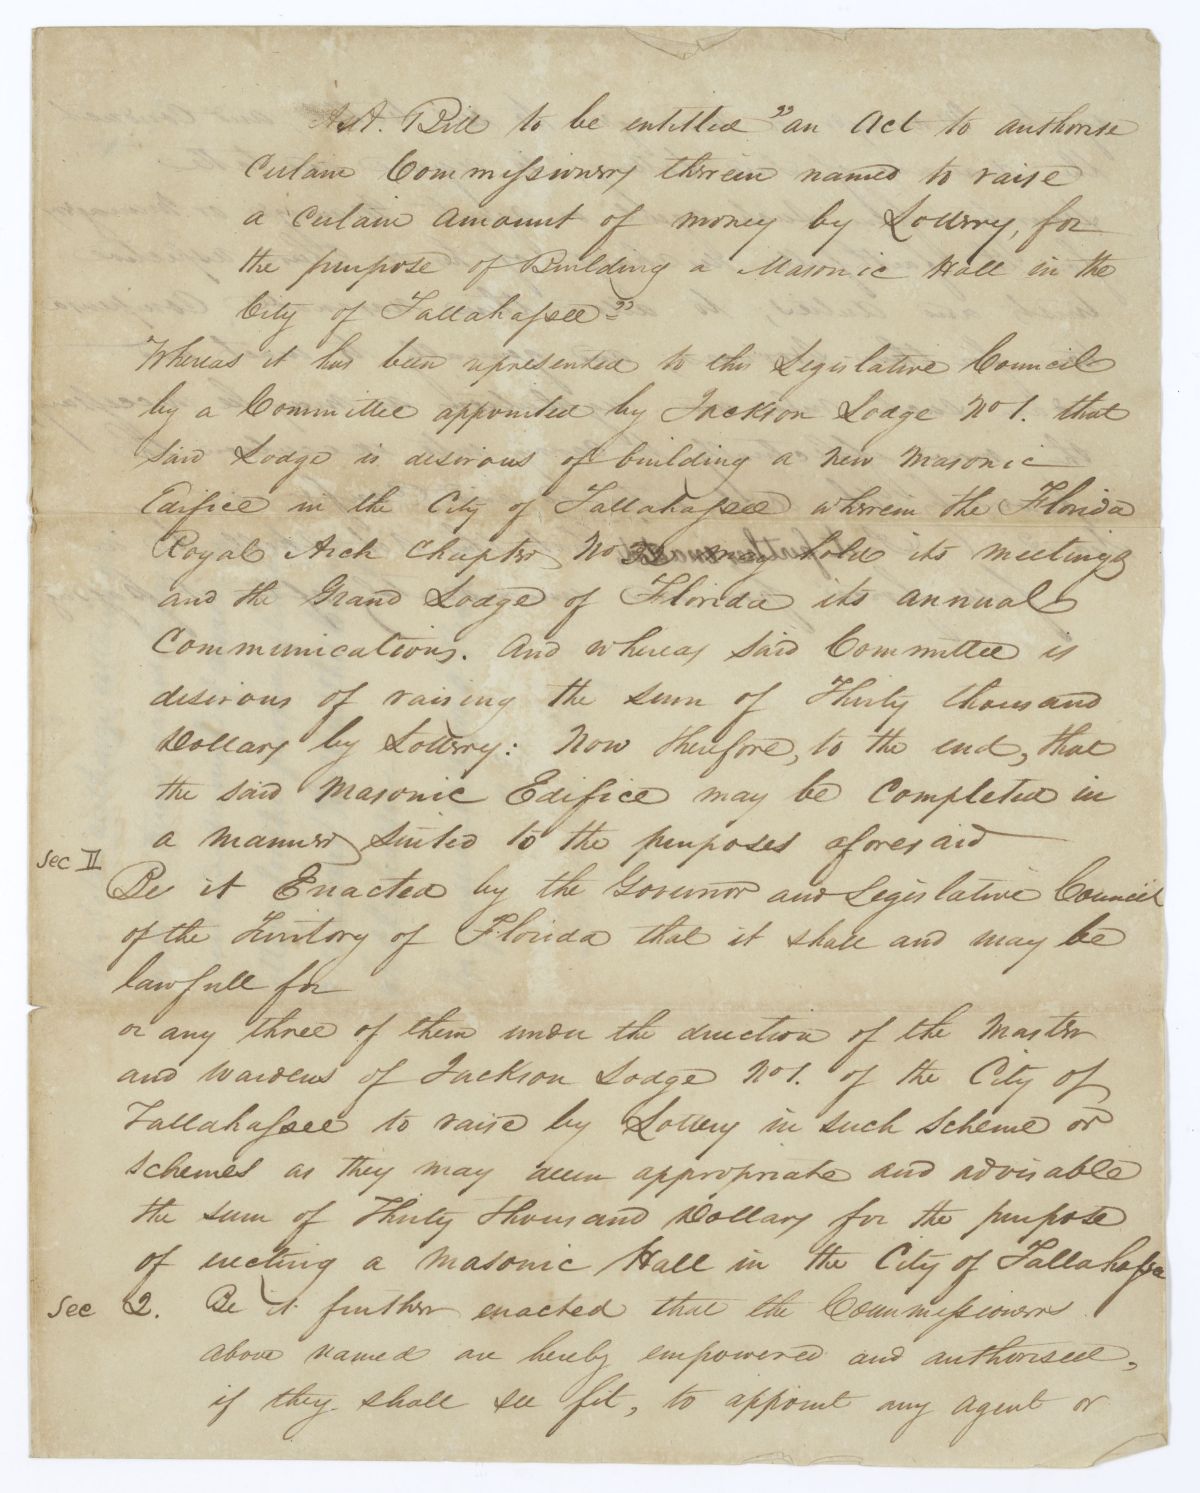 A. Bill to be entitled "an Act to authorise
Certain Commissioners therein named to raise
a Certain Amount of money by Lottery, for
the purpose of Building a Masonic Hall in the
City of Tallahassee"
Whereas it has been represented to this Legislative Council
by a Committee appointed by Jackson Lodge No 1. that
said Lodge is desirous of building a New Masonic
Edifice in the City of Tallahassee wherein the Florida
Royal Arch Chapter No may hold its meetings
and the Grand Lodge of Florida its annual
Communications. And whereas said Committee is
desirous of raising the sum of Thirty thousand
Dollars by Lottery: Now therefore, to the end, that
the said Masonic Edifice may be Completed in
a manner suited to the purposes aforesaid
Sec II
Be it Enacted by the Governor and Legislative Council
of the Territory of Florida that it shall and may be
lawfull for
or any three of them under the direction of the Master
and Wardens of Jackson Lodge No 1. of the City of
Tallahassee to raise by Lottery in such Scheme or
Schemes as they may deem appropriate and advisable
the sum of Thirty Thousand Dollars for the purpose
of erecting a Masonic Hall in the City of Tallahassee
Sec 2. Be it further enacted that the Commissioners
above named are hereby empowered and authorised,
if they shall see fit, to appoint any agent or